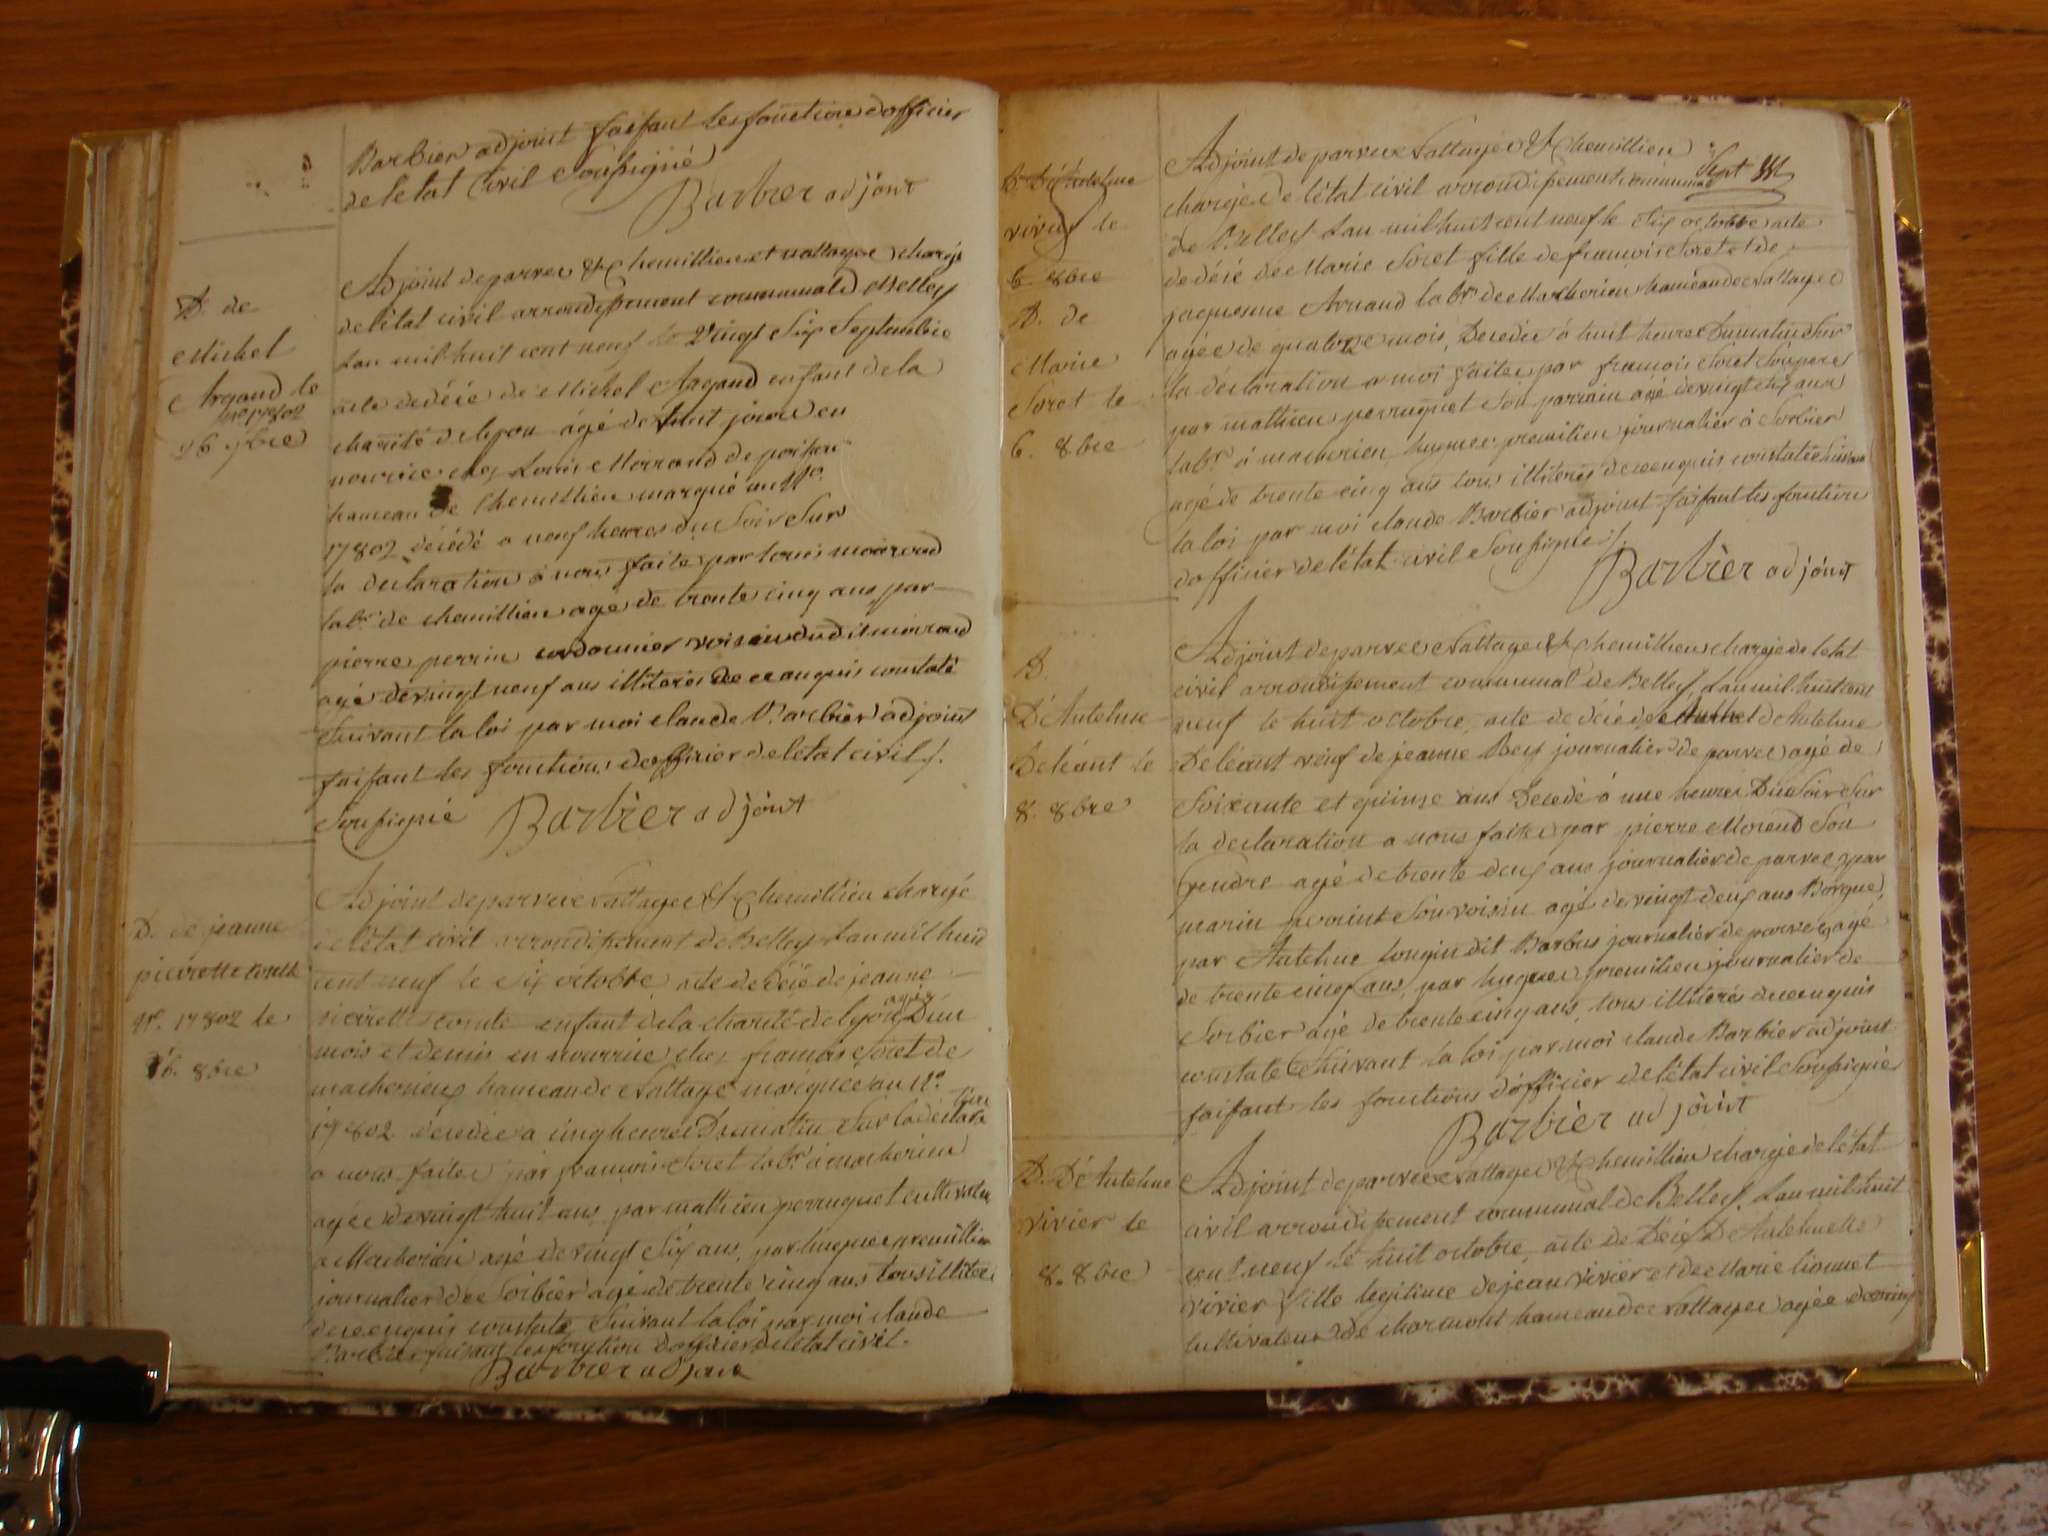 Barbier adjoint faisant les fonctions dofficier
de letat Civil Soussigné
Barbier adjoint
D. de
Michel
Argaud le
no 17802
26 7bre
Adjoint de parves & Chemillieu et nattages chargé
de letat civil arrondissement communal d Belley
Lan mil huit cent neuf le Vingt Six Septembre
acte de décé de Michel Argaud enfant de la
charité de lyon âgé de huit jours en
nourrice chez Louis Moirroud de
hameau de Chemillieu marqué au No.
17802 décédé a neuf heures du Soir Sur
la declaration a nous faite par louis moirroud
labr. de chemillieu agé de trente cinq ans par
pierre perrin cordonnier voisin dudit moirroud
agé de vingt neuf ans illiterés de ce anquis constaté
Suivant la loi par moi claude Barbier adjoint
faisant les fonctions dofficier de letat civil
Soussigné
Barbier adjoint
D. de jeanne
pierrette
No. 17802 le
6. 8bre
Adjoint de parves nattages & Chemillieu chargé
de létat civil arrondissement de Belley Lan mil huit
cent neuf le Six octobre acte de décé de jeanne
pierrette enfant de la charité de lyon agée Dun
mois et demis en nourrice chez francois Soret de
hameau de nattage marquée au No.
17802 décédée a cinq heures Du matin Sur la déclara tion
a nous faite par francois Soret labr. a
agée de vingt huit ans par mathieu perruquet cultivateur
a agé de vingt Six ans, par hugues premillieu
journalier de Sorbier agé de trente cinq ans tous illiterés
de ce enquis constaté Suivant la loi par moi claude
Barbier faisant les fonction dofficier de letat civil.
Barbier adjoint
D. D'Antelme
vivier le
6 8bre
D. de
Marie
Soret le
6. 8bre
Adjoint de parves nattages & Chemillieu
chargé de l'état civil arrondissement communal
de Belley Lan mil huit cent neuf le Six octobre acte
de décé de Marie Soret fille de francois Soret et de
jaquemne Arnaud labr. de hameau de nattages
agée de quatorze mois, Décédée à huit heures Du matin Sur
la déclaration a moi faite par francois Soret Son pere
par mathieu perruquet Son parrain agé de vingt Six ans
labr. à hugues premilieu journalier à Sorbier
agé de trente cinq ans tous illiterés de ce enquis constatée Suivant
la loi par moi claude Barbier adjoint faisant les fonctions
dofficier de létat civil Soussigné
Barbier adjoint
D.
D'Antelme
Deléant le
8. 8bre
Adjoint de parves nattages & chemillieu chargé de létat
civil arrondissement communal de Belley Lan mil huit cent
neuf le huit octobre, acte de décé de d'Antelme
Deléant veuf de jeanne Bey journalier de parves agé de
Soixante et quinze ans Décédé à une heure Du Soir Sur
la declaration a nous faite par pierre Morend Son
gendre agé de trente deux ans journalier de parves, par
marin perrint Son voisin agé de vingt deux ans
par Antelme longin dit Barbus journalier de parves, agé
de trente cinq ans, par hugues premilieu journalier de
Sorbier agé de trente cinq ans, tous illiterés de ce enquis
constaté Suivant la loi par moi claude Barbier adjoint
faisant les fonctions d'officier de létat civil Soussigné
Barbier adjoint
D. D'Antelme
vivier le
8. 8bre
Adjoint de parves nattages & Chemillieu chargé de létat
civil arrondissement communal de Belley, Lan mil huit
cent neuf le huit octobre, acte de Décé D'Antelmette
vivier fille legitime de jean vivier et de Marie lionnet
cultivateur de charmont hameau de nattages agée de